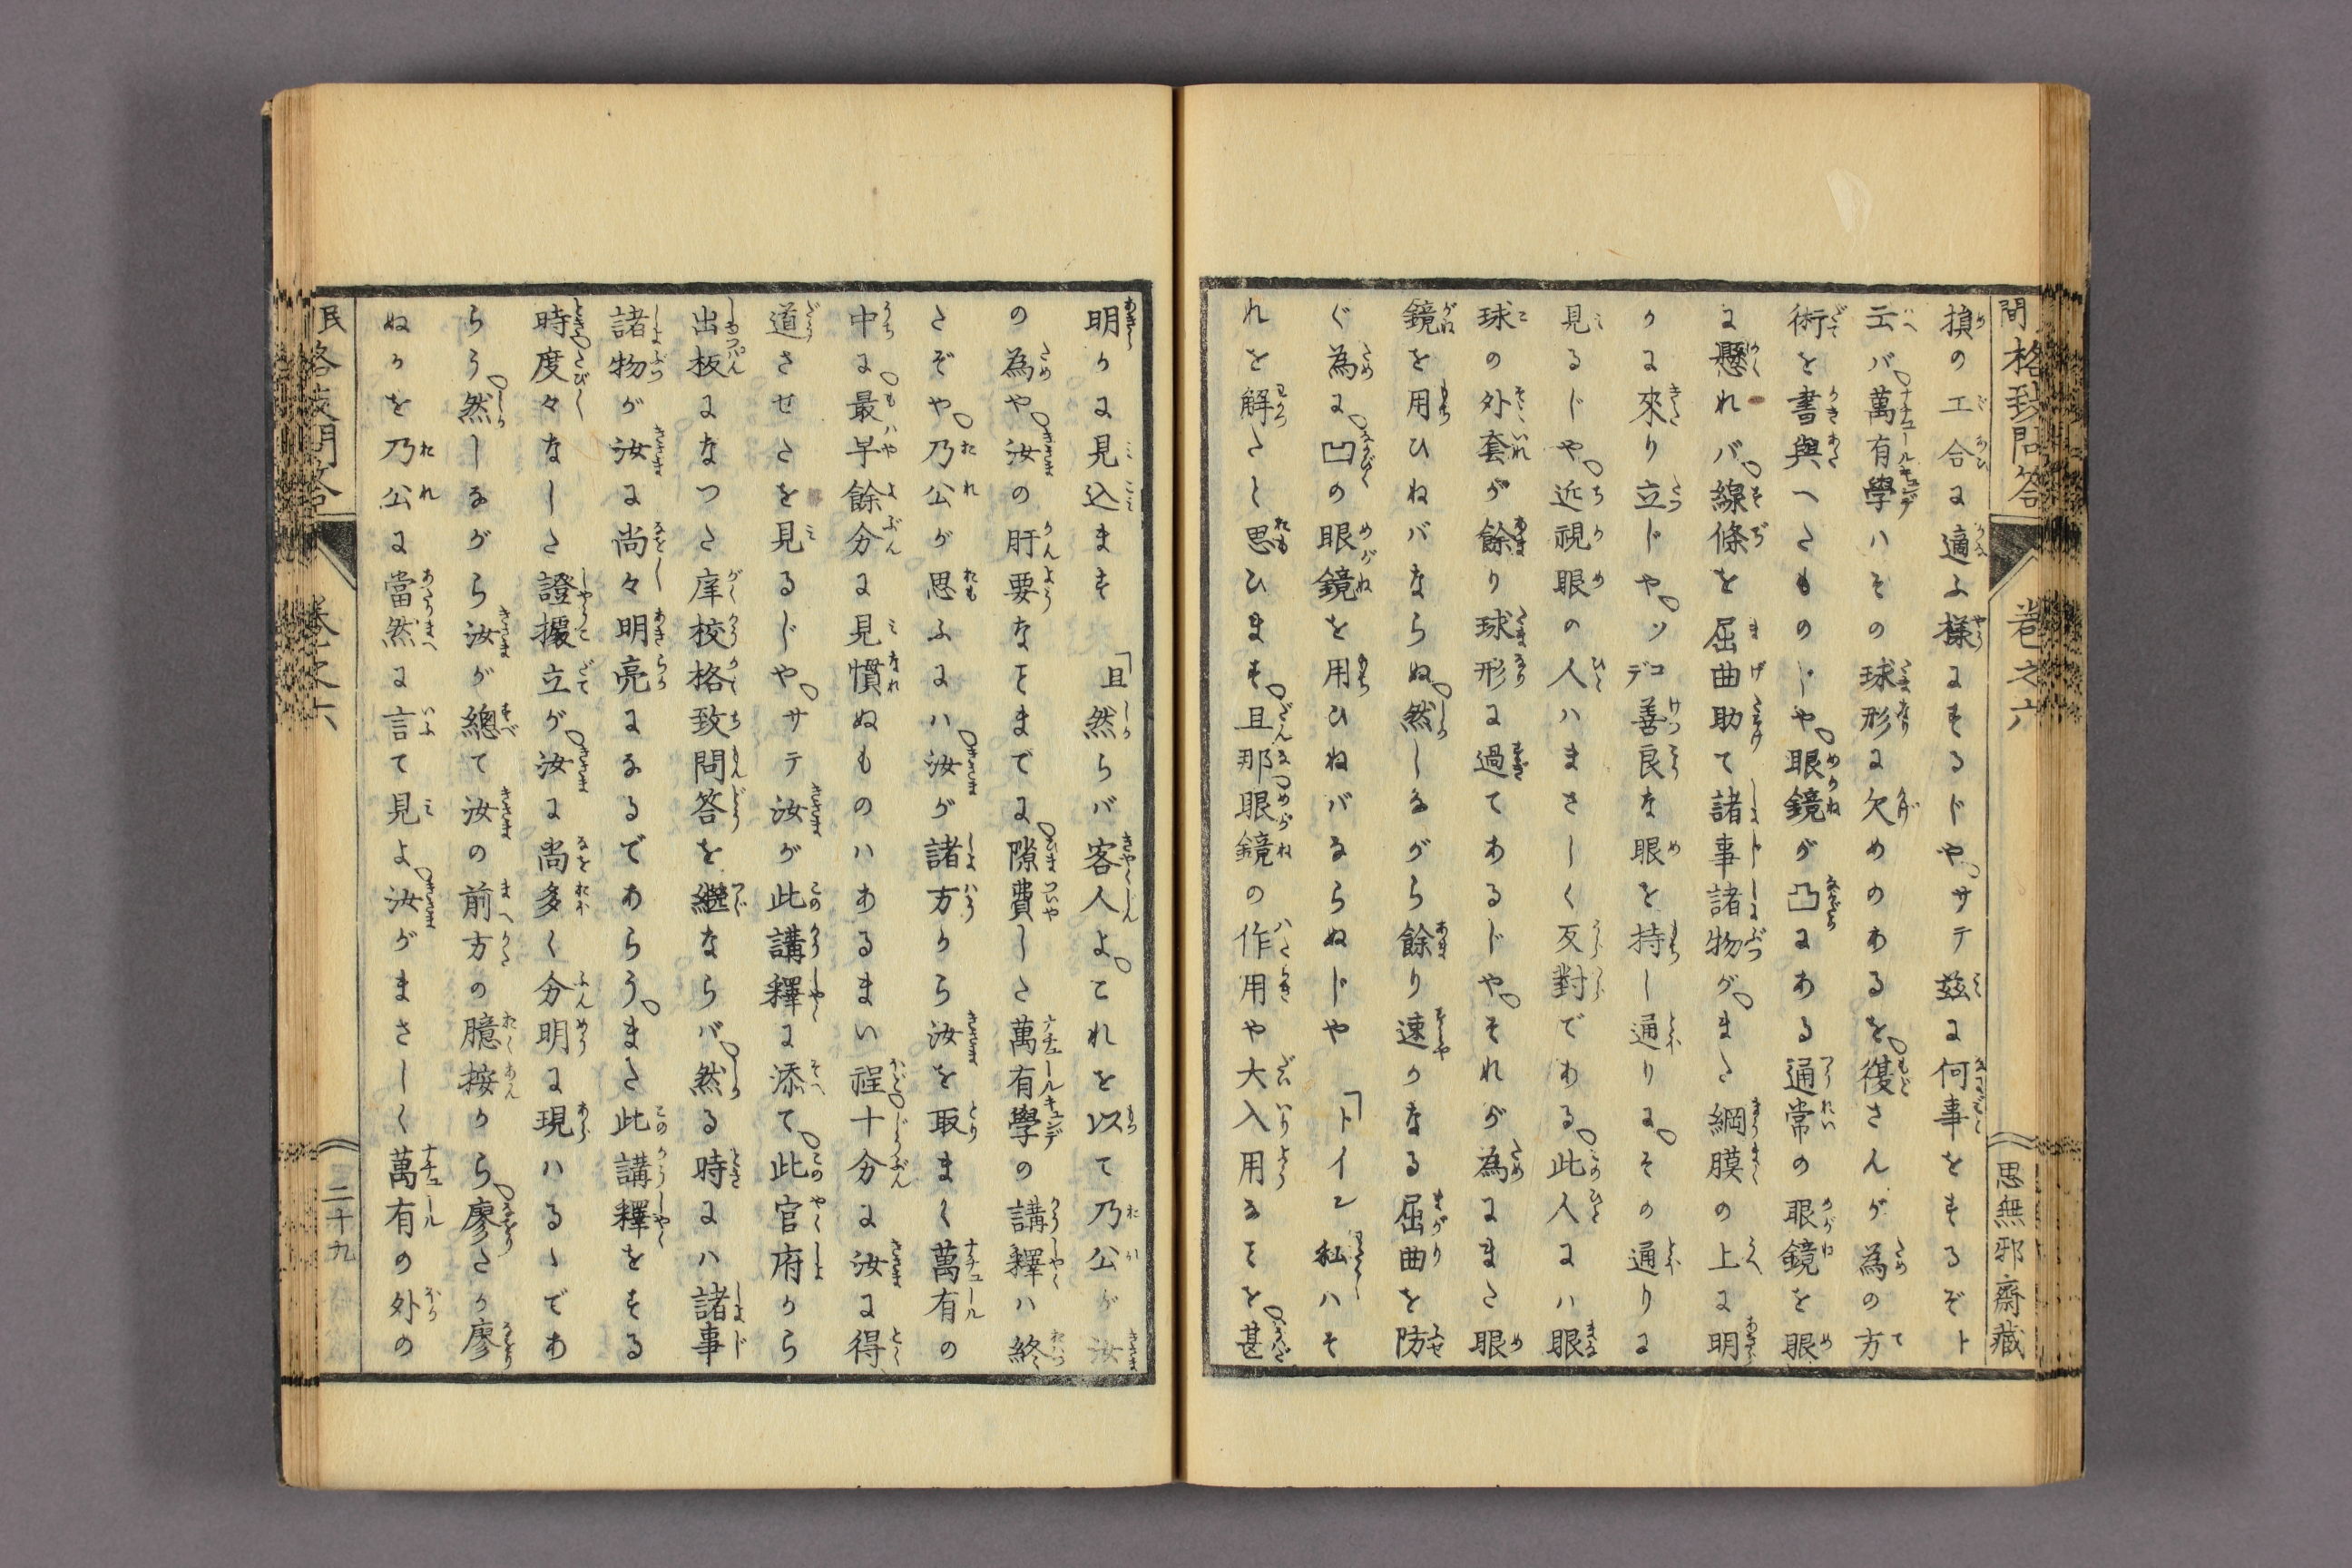 民間格致問答
巻之六
思無邪齋藏
損の工合に適ふ樣にするじや、サテ茲に何事をするぞト
云バ、萬有學ハその球形に欠めのあるを、復さんが為の方
術を書與へたものじや、眼鏡が凸にある通常の眼鏡を眼
に懸れバ、線條を屈曲助て諸事諸物が、また網膜の上に明
かに來り立じや、ソコデ善良な眼を持し通りに、その通りに
見るじや、近視眼の人ハまさしく反對である、此人にハ眼
球の外套が餘り球形に過てあるじや、それが為にまた眼
鏡を用ひねバならぬ、然しながら餘り速かなる屈曲を防
ぐ為に、凹の眼鏡を用ひねバならぬじや 「トイン 私ハそ
れを解たと思ひます、且那眼鏡の作用や大入用なことを、甚
明かに見込ます 「且 然らバ客人よ、これを以て乃公が汝
の為や、汝の肝要なことまでに、隙費した萬有學の講釋ハ終
たぞや、乃公が思ふにハ、汝が諸方から汝を取まく萬有の
中に、最早餘分に見慣ぬものハあるまい程、十分に汝に得
道させたを見るじや、サテ汝が此講釋に添て、此官府から
出板になつた庠校格致問答を繼ならバ、然る時にハ諸事
諸物が汝に尚々明亮になるであらう、また此講釋をする
時度々なした證據立が、汝に尚多く分明に現ハるゝであ
らう、然しながら汝が總て汝の前方の臆按から、廖たか廖
ぬかを乃公に當然に言て見よ、汝がまさしく萬有の外の
民間格致問答
巻之六
二十九